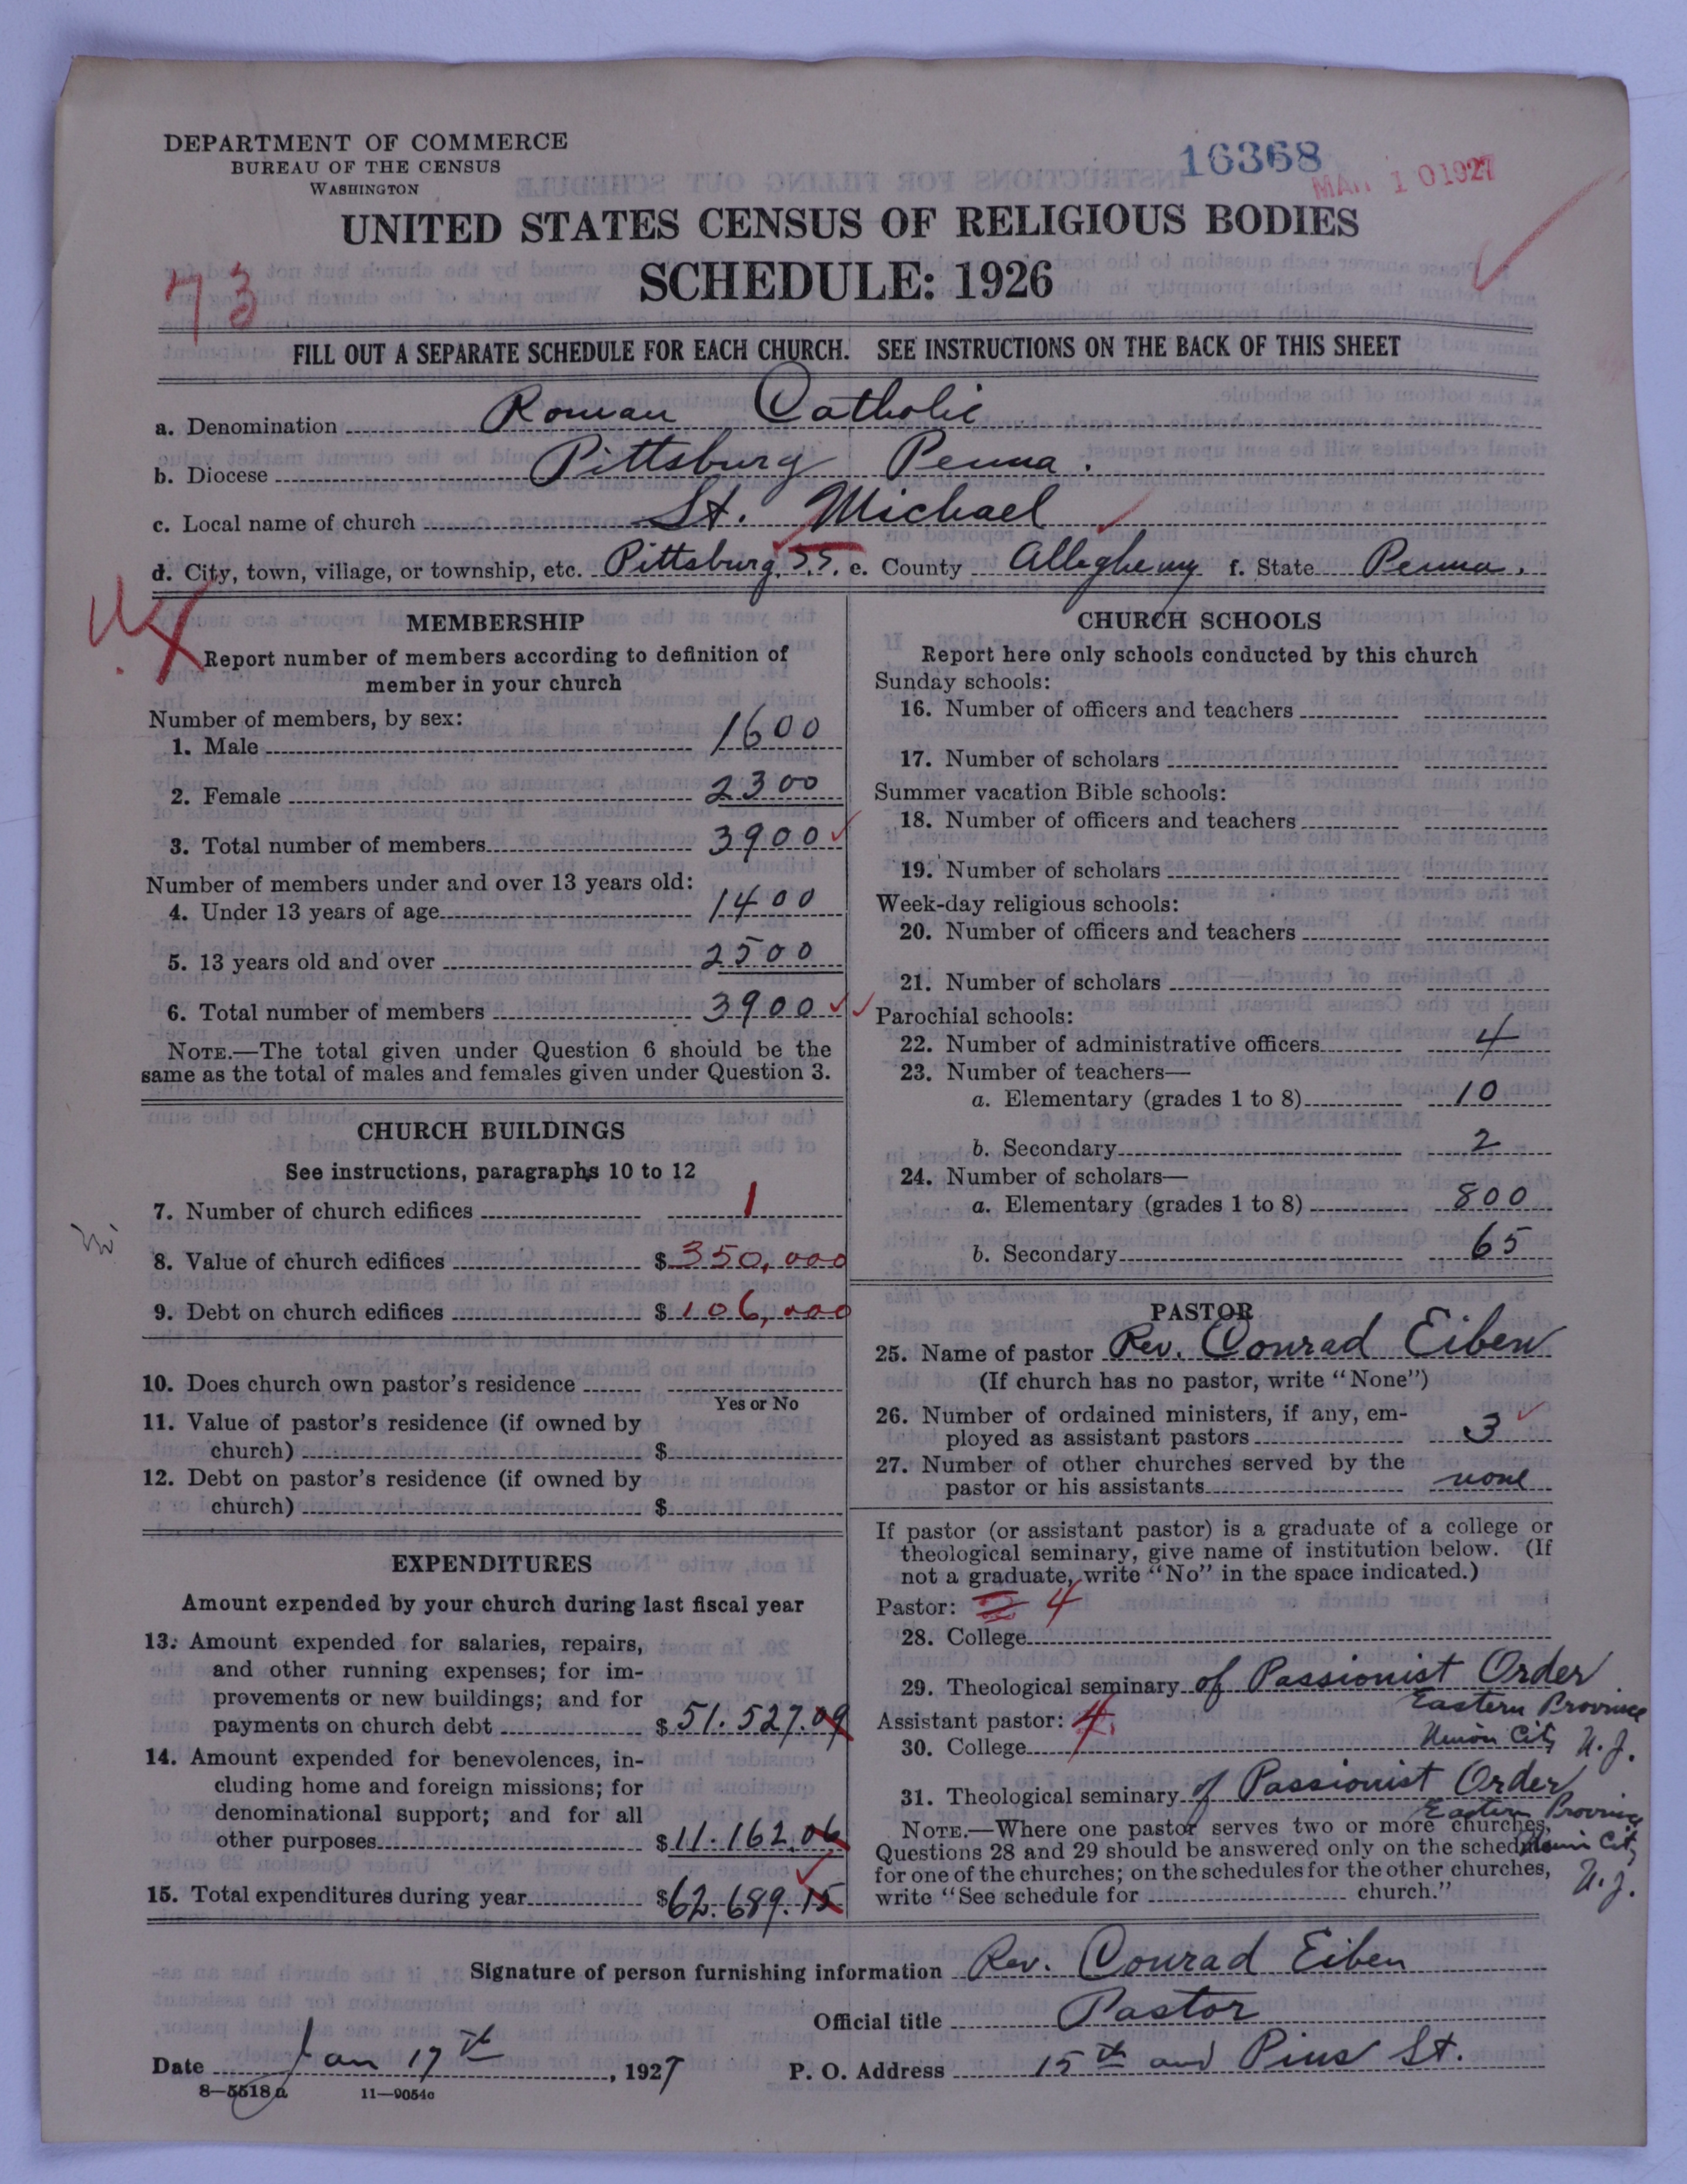 DEPARTMENT OF COMMERCE
BUREAU OF THE CENSUS
WASHINGTON
16368
MAR 10 1927
UNITED STATES CENSUS OF RELIGIOUS BODIES
SCHEDULE: 1926
73
FILL OUT A SEPARATE SCHEDULE FOR EACH CHURCH. SEE INSTRUCTIONS ON THE BACK OF THIS SHEET
a. Denomination Roman Catholic
b. Diocese Pittsburg Penna.
c. Local name of church St. Michael
d. City, town, village, or township, etc. Pittsburg, S.S. e. County Allegheny f. State Penna.
MEMBERSHIP
Report number of members according to definition of
member in your church
Number of members, by sex:
1. Male 1600
2. Female 2300
3. Total number of members 3900
Number of members under and over 13 years old:
4. Under 13 years of age 1400
5. 13 years old and over 2500
6. Total number of members 3900
NOTE.—The total given under Question 6 should be the
same as the total of males and females given under Question 3.
CHURCH BUILDINGS
See instructions, paragraphs 10 to 12
7. Number of church edifices 1
8. Value of church edifices $350,000
9. Debt on church edifices $106,000
10. Does church own pastor's residence
Yes or No
11. Value of pastor's residence (if owned by
church) $
12. Debt on pastor's residence (if owned by
church) $
EXPENDITURES
Amount expended by your church during last fiscal year
13. Amount expended for salaries, repairs,
and other running expenses; for im-
provements or new buildings; and for
payments on church debt $51.527.09
14. Amount expended for benevolences, in-
cluding home and foreign missions; for
denominational support; and for all
other purposes $11.162.06
15. Total expenditures during year $62.689.15
CHURCH SCHOOLS
Report here only schools conducted by this church
Sunday schools:
16. Number of officers and teachers
17. Number of scholars
Summer vacation Bible schools:
18. Number of officers and teachers
19. Number of scholars
Week-day religious schools:
20. Number of officers and teachers
21. Number of scholars
Parochial schools:
22. Number of administrative officers 4
23. Number of teachers—
a. Elementary (grades 1 to 8) 10
b. Secondary 2
24. Number of scholars—
a. Elementary (grades 1 to 8) 800
b. Secondary 65
PASTOR
25. Name of pastor Rev. Conrad Eiben
(If church has no pastor, write "None")
26. Number of ordained ministers, if any, em-
ployed as assistant pastors 3
27. Number of other churches served by the
pastor or his assistants none
If pastor (or assistant pastor) is a graduate of a college or
theological seminary, give name of institution below. (If
not a graduate, write "No" in the space indicated.)
Pastor: 4
28. College
29. Theological seminary of Passionist Order
Eastern Province
Assistant pastor: 4
30. College Union City N.J.
31. Theological seminary of Passionist Order
Eastern Province
NOTE.—Where one pastor serves two or more churches,
Questions 28 and 29 should be answered only on the schedule Union City
for one of the churches; on the schedules for the other churches,
write "See schedule for church." N.J.
Signature of person furnishing information Rev. Conrad Eiben
Official title Pastor
Date Jan 17th, 1927 P. O. Address 15th and Pius St.
8—5518a 11—9054a